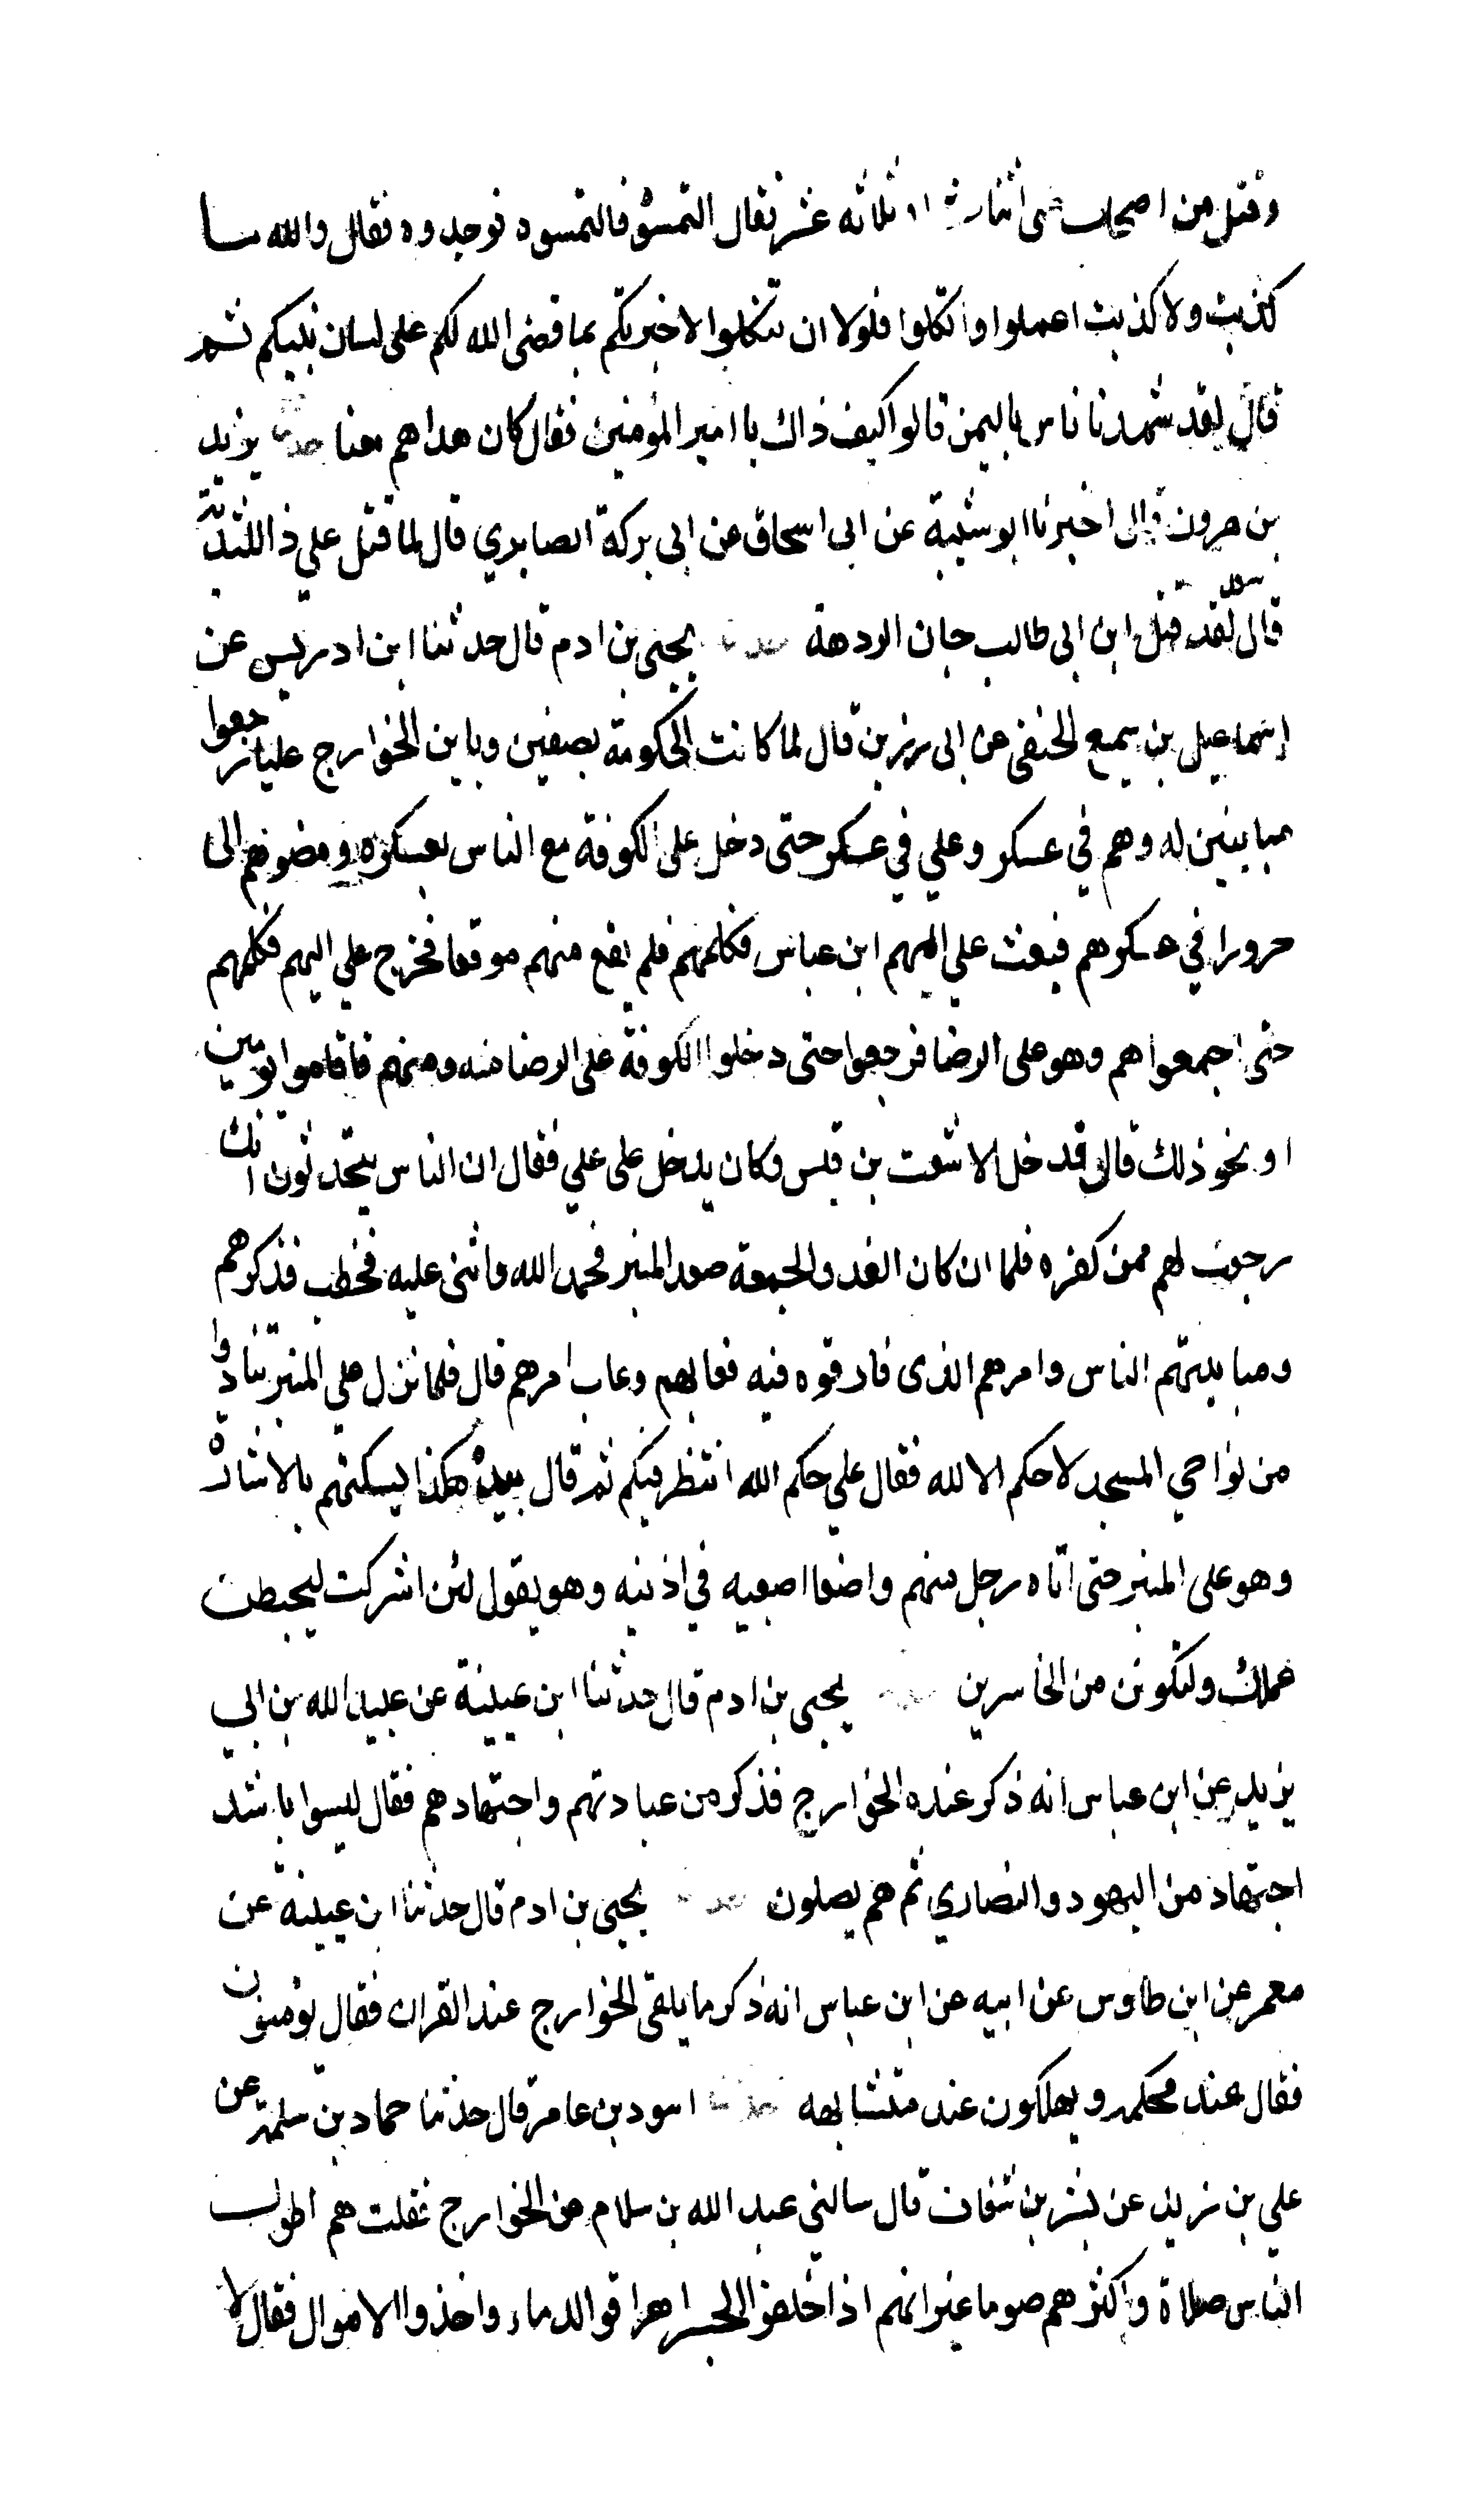 وقتل من اصحاب علي اثنا عشر او ثلاثة عشر فقال التمسوه فالتمسوه فوجدوه فقال والله ما
كذبت ولا كذبت اعملوا واتكلوا فلولا ان تتكلوا لاخبرتكم بما قضى الله لكم على لسان نبيكم ثم
قال لقد شهدنا ناس باليمن قالوا كيف ذاك يا امير المؤمنين فقال كان هداهم معنا حدثنا يزيد
بن هرون قال اخبرنا ابو شيبة عن ابى اسحاق عن ابى بركة الصايدي قال لما قتل علي ذا الثدية
قال سعد لقد قتل ابن ابى طالب جان الردهة حدثنا يحيى بن ادم قال حدثنا ابن ادريس عن
اسماعيل بن سميع الحنفى عن ابى رزين قال لما كانت الحكومة بصفين وباين الخوارج عليا رجعوا
مباينين له وهم في عسكر وعلي في عسكر حتى دخل على الكوفة مع الناس بعسكره ومضوا هم الى
حرورا في عسكرهم فبعث علي اليهم ابن عباس فكلمهم فلم يقع منهم موقعا فخرج علي اليهم فكلمهم
حتى اجمعوا هم وهو على الرضا فرجعوا حتى دخلوا الكوفة على الرضا منه ومنهم فاقاموا يومين
او نحو ذلك قال فدخل الاشعث بن قيس وكان يدخل على علي فقال ان الناس يتحدثون انك
رجعت لهم عن كفره فلما ان كان الغد والجمعة صعد المنبر فحمد الله واثنى عليه فخطب فذكرهم
ومباينتهم الناس وامرهم الذى فارقوه فيه فعابهم وعاب امرهم قال فلما نزل على المنبر تنادوا
من نواحي المسجد لا حكم الا لله فقال علي حكم الله انتظر فيكم ثم قال بيده هكذا يسكتهم بالاشارة
وهو على المنبر حتى اتاه رجل منهم واضعا اصبعيه في اذنيه وهو يقول لئن اشركت ليحبطن
عملك ولتكونن من الخاسرين حدثنا يحيى بن ادم قال حدثنا ابن عيينة عن عبيد الله بن ابي
يزيد عن ابن عباس انه ذكر عنده الخوارج فذكر من عبادتهم واجتهادهم فقال ليسوا باشد
اجتهاد من اليهود والنصاري ثم هم يصلون حدثنا يحيى بن ادم قال حدثنا ابن عيينة عن
معمر عن ابن طاوس عن ابيه عن ابن عباس انه ذكر ما يلقى الخوارج عند القران فقال يؤمنون
فقال عند محكمه ويهلكون عند متشابهه حدثنا اسود بن عامر قال حدثنا حماد بن سلمة عن
علي بن زيد عن بشر بن شغاف قال سالني عبد الله بن سلام عن الخوارج فقلت هم اطول
الناس صلاة واكثرهم صوما غير انهم اذا خلفوا الجسر اهراقوا الدماء واخذوا الاموال فقال لا